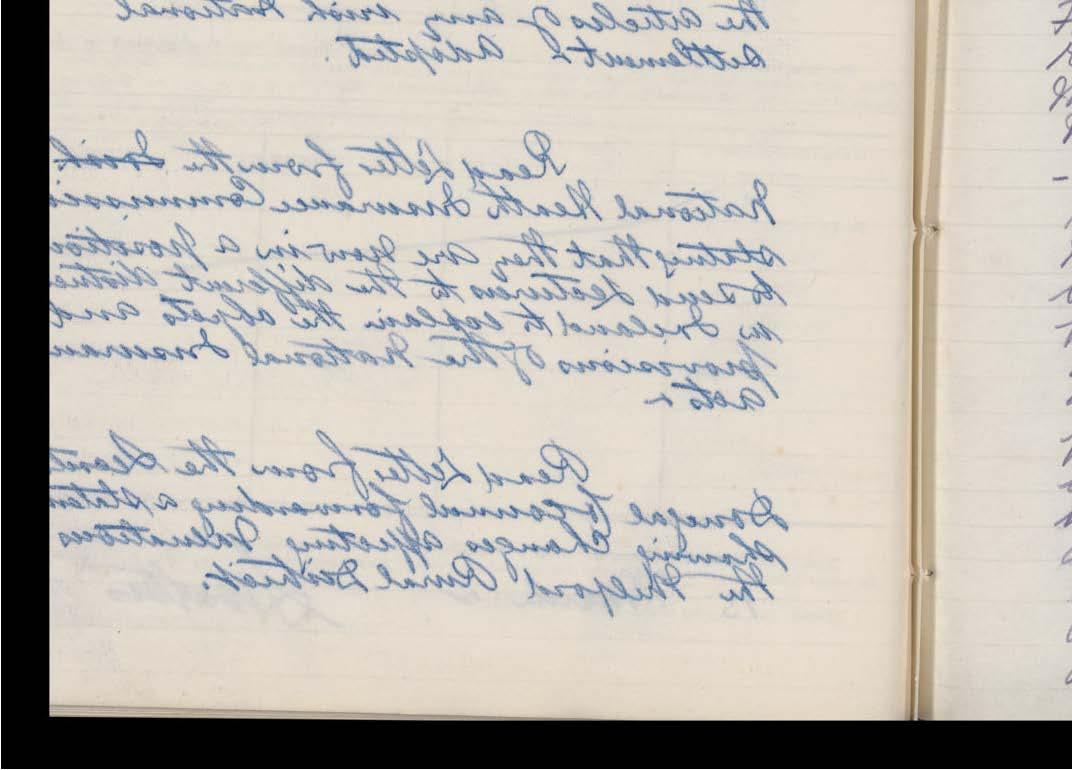 the articles of any Irish National
Settlement & adopted.
Read Letter from the Irish
National Health Insurance Commissi
stating that they are now in a position
to send Lecturers to the different distric
in Ireland to explain the objects and
provisions of the National Insuran
Acts -
Read Letter from the Secret
Donegal Co Council forwarding a statem
showing Changes affecting Valuations
The Milford Rural District.